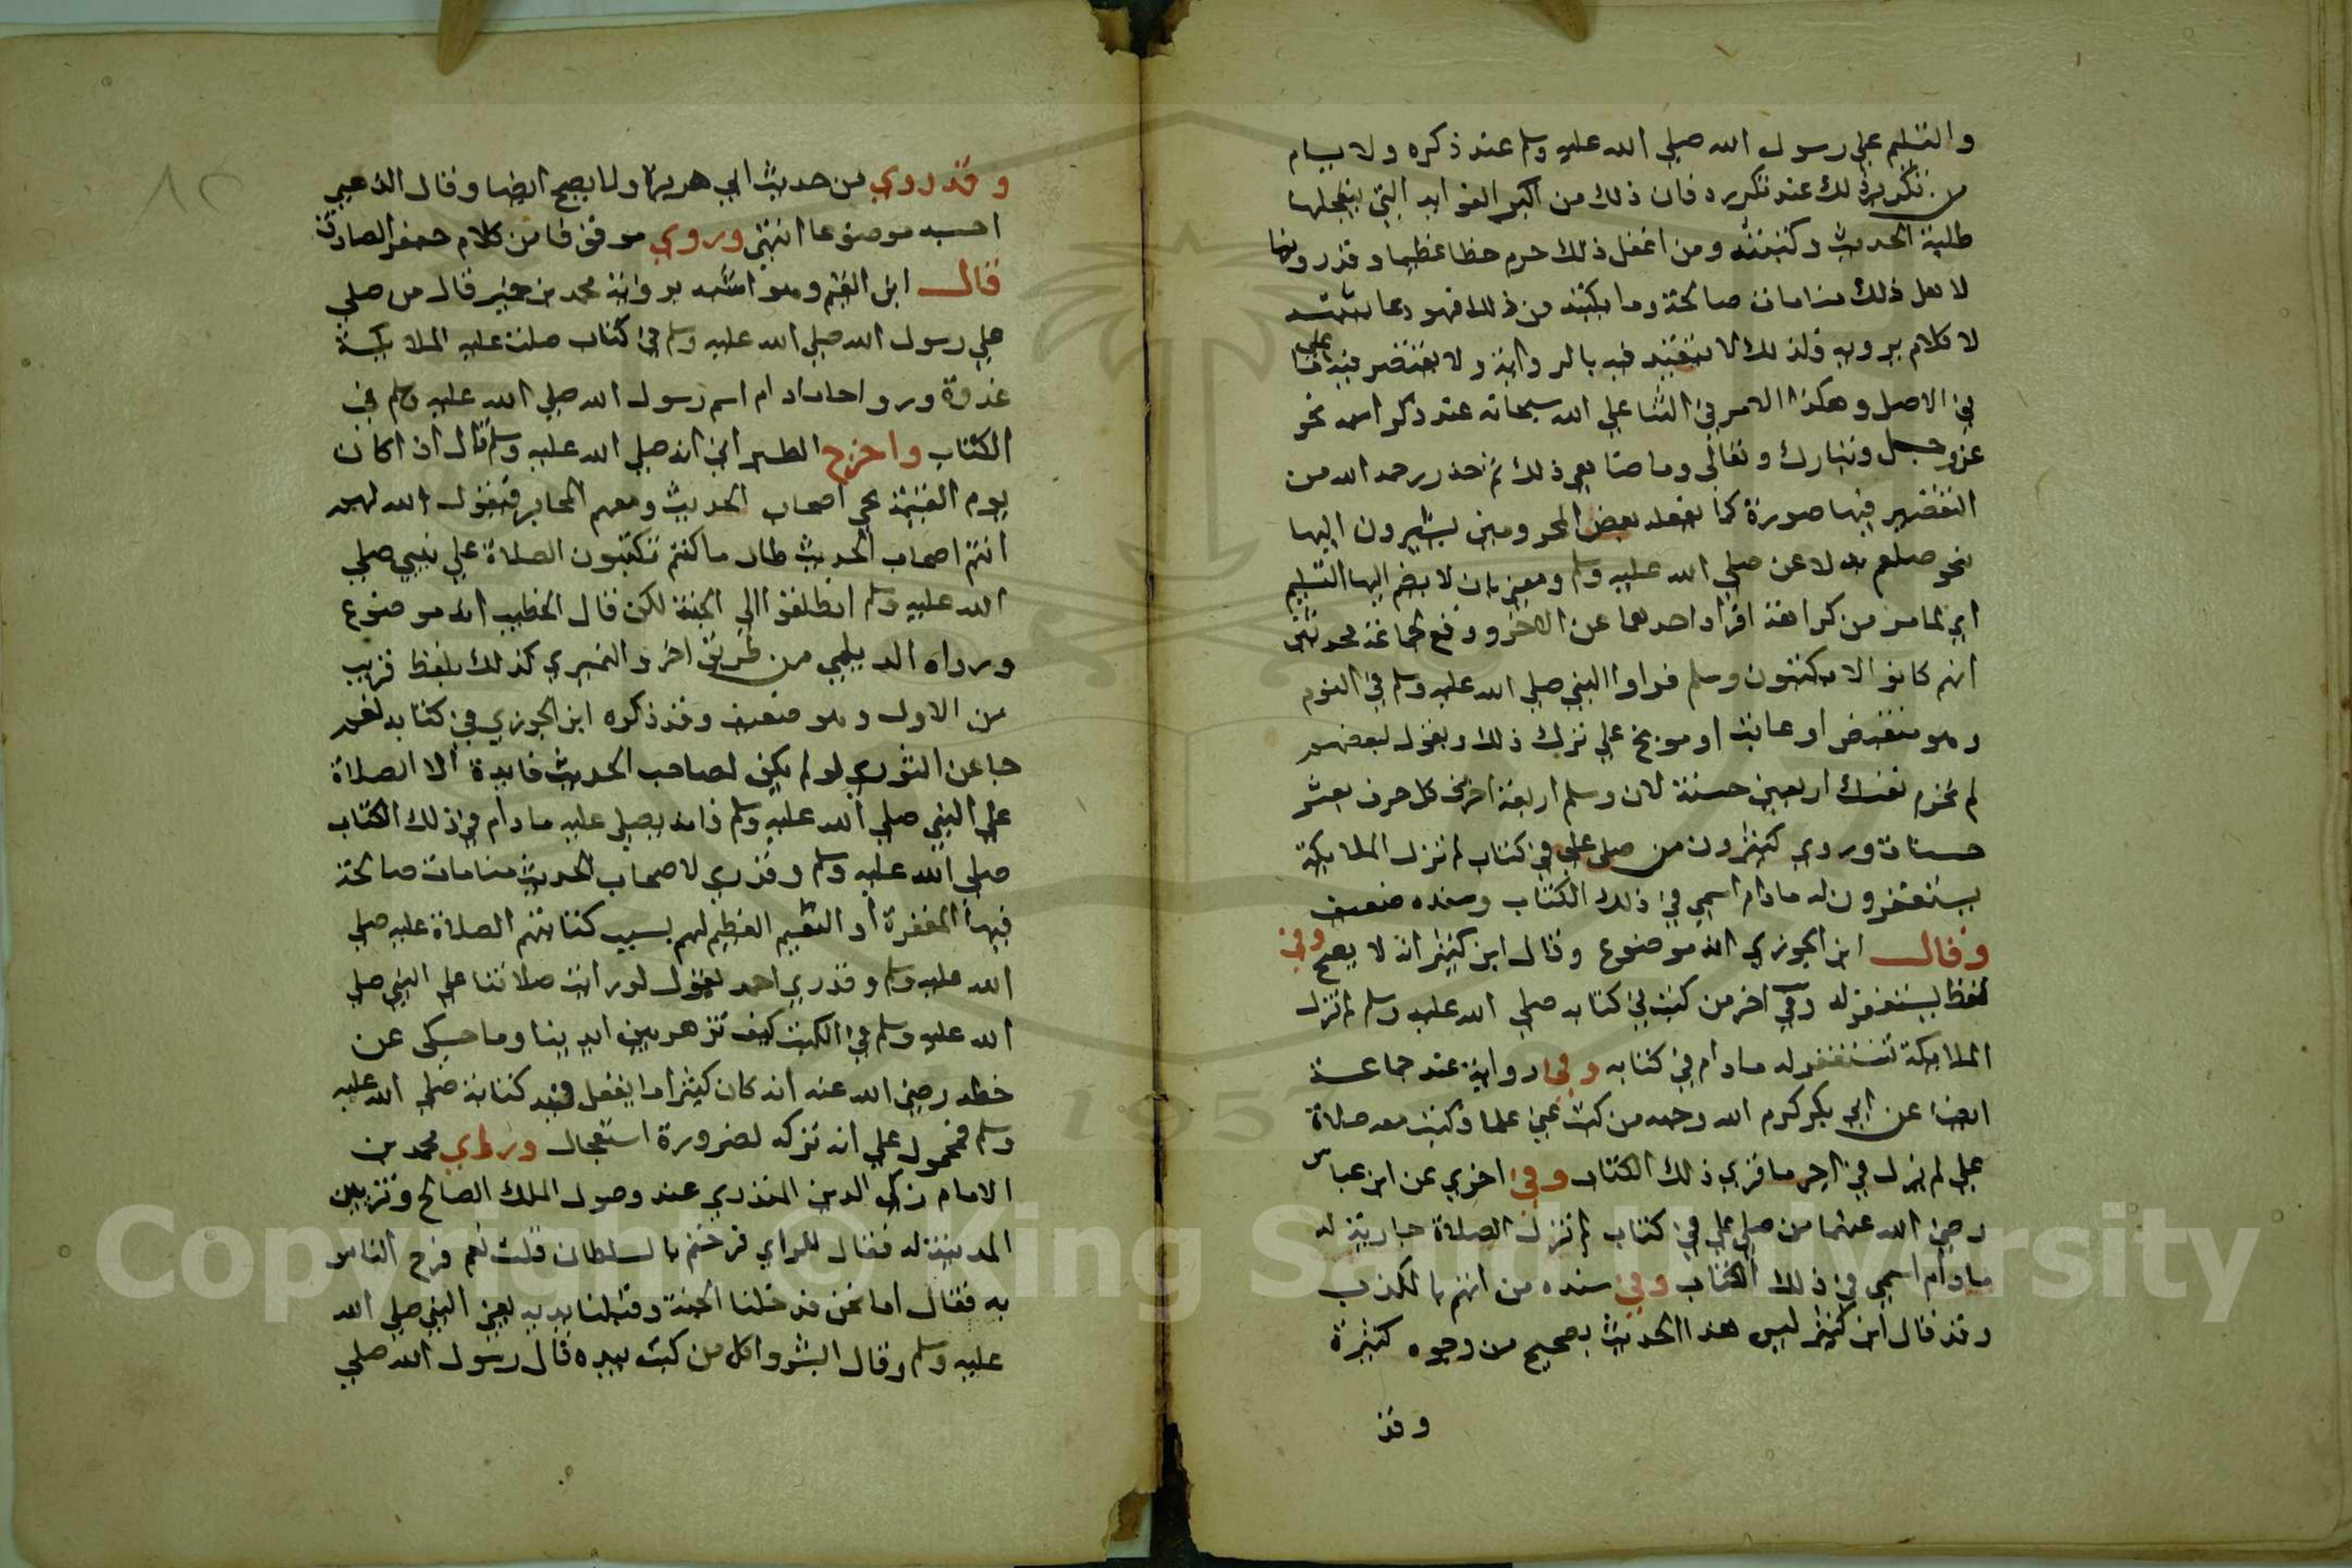 والتسليم علي رسول الله صلي الله عليه وسلم عند ذكره ولا يسام
من تكرير ذلك عند تكريره فان ذلك من اكبر الفوايد التي يتعجلها
طلبة الحديث وكتبته ومن اغفل ذلك حرم حظا عظيما وقد روينا
لاهل ذلك منامات صالحة وما يكتبه من ذلك فهو دعا يثبته
لا كلام يرويه فلذلك لا يتقيد فيه بالرواية ولا يقتصر فيه علي ما
في الاصل وهكذا الامر في الثنا علي الله سبحانه عند ذكر اسمه نحو
عز وجل وتبارك وتعالي وما ضاهي ذلك ثم حذر رحمه الله من
التقصير فيها صورة كما يفعله بعض المحرومين يشيرون اليها
نحو صلعم بدلا عن صلي الله عليه وسلم ومعني بان لا يضم اليها التسليم
اي لما مر من كراهة افراد احدهما عن الاخر ووقع لجماعة محدثين
انهم كانوا لا يكتبون وسلم فراوا النبي صلي الله عليه وسلم في النوم
وهو منقبض او عاتب او موبخ علي ترك ذلك ويقول لبعضهم
لم تحرم نفسك اربعين حسنة لان وسلم اربعة احرف كل حرف بعشر
حسنات وروي كثيرون من صلي علي في كتاب لم تزل الملايكة
يستغفرون له مادام اسمي في ذلك الكتاب وسنده ضعيف
وقال ابن الجوزي انه موضوع وقال ابن كثير انه لا يصح وفي
لفظ يستغفر له وفي اخر من كتب في كتابه صلي الله عليه وسلم لم تزل
الملايكة تستغفر له مادام في كتابه وفي رواية عند جماعة
ايضا عن ابي بكر كرم الله وجهه من كتب عني علما وكتب معه صلاة
علي لم يزل في اجر ما قري ذلك الكتاب وفي اخري عن ابن عباس
رضي الله عنهما من صلي علي في كتاب لم تزل الصلاة جارية له
مادام اسمي في ذلك الكتاب وفي سنده من اتهم بالكذب
وقد قال ابن كثير ليس هذا الحديث بصحيح من وجوه كثيرة
وقد
وقد روي من حديث ابي هريرة ولا يصح ايضا وقال الذهبي
احسبه موضوعا انتهي وروي موقوفا من كلام جعفر الصادق
قال ابن القيم وهو اشبه برواية محمد بن حمير قال من صلي
علي رسول الله صلي الله عليه وسلم في كتاب صلت عليه الملايكة
غدوة ورواحا مادام اسم رسول الله صلي الله عليه وسلم في
الكتاب واخرج الطبراني انه صلي الله عليه وسلم قال اذا كان
يوم القيمة يجي اصحاب الحديث ومعهم المحابر فيقول الله لهم
انتم اصحاب الحديث طال ما كنتم تكتبون الصلاة علي نبيي صلي
الله عليه وسلم انطلقوا الي الجنة لكن قال الخطيب انه موضوع
ورواه الديلمي من طريق اخر والنميري كذلك بلفظ قريب
من الاول وهو ضعيف وقد ذكره ابن الجوزي في كتابه نعم
جا عن الثوري لو لم يكن لصاحب الحديث فايدة الا الصلاة
علي النبي صلي الله عليه وسلم فانه يصلي عليه مادام في ذلك الكتاب
صلي الله عليه وسلم وقد ري لاصحاب الحديث منامات صالحة
فيها المغفرة او النعيم العظيم لهم بسبب كتابتهم الصلاة عليه صلي
الله عليه وسلم وقد ري احمد يقول لو رايت صلاتنا علي النبي صلي
الله عليه وسلم في الكتب كيف تزهر بين ايدينا وما حكي عن
خطه رضي الله عنه انه كان كثيرا ما يغفل فيه كتابة صلي الله عليه
وسلم فمحمول علي انه تركه لضرورة استعجال وراي محمد بن
الامام زكي الدين المنذري عند وصول الملك الصالح وتزيين
المدينة له فقال للراي فرحتم بالسلطان قلت نعم فرح الناس
به فقال اما نحن فدخلنا الجنة وقبلنا يديه يعني النبي صلي الله
عليه وسلم وقال ابشروا كل من كتب بيده قال رسول الله صلي
Copyright © King Saud University
1957